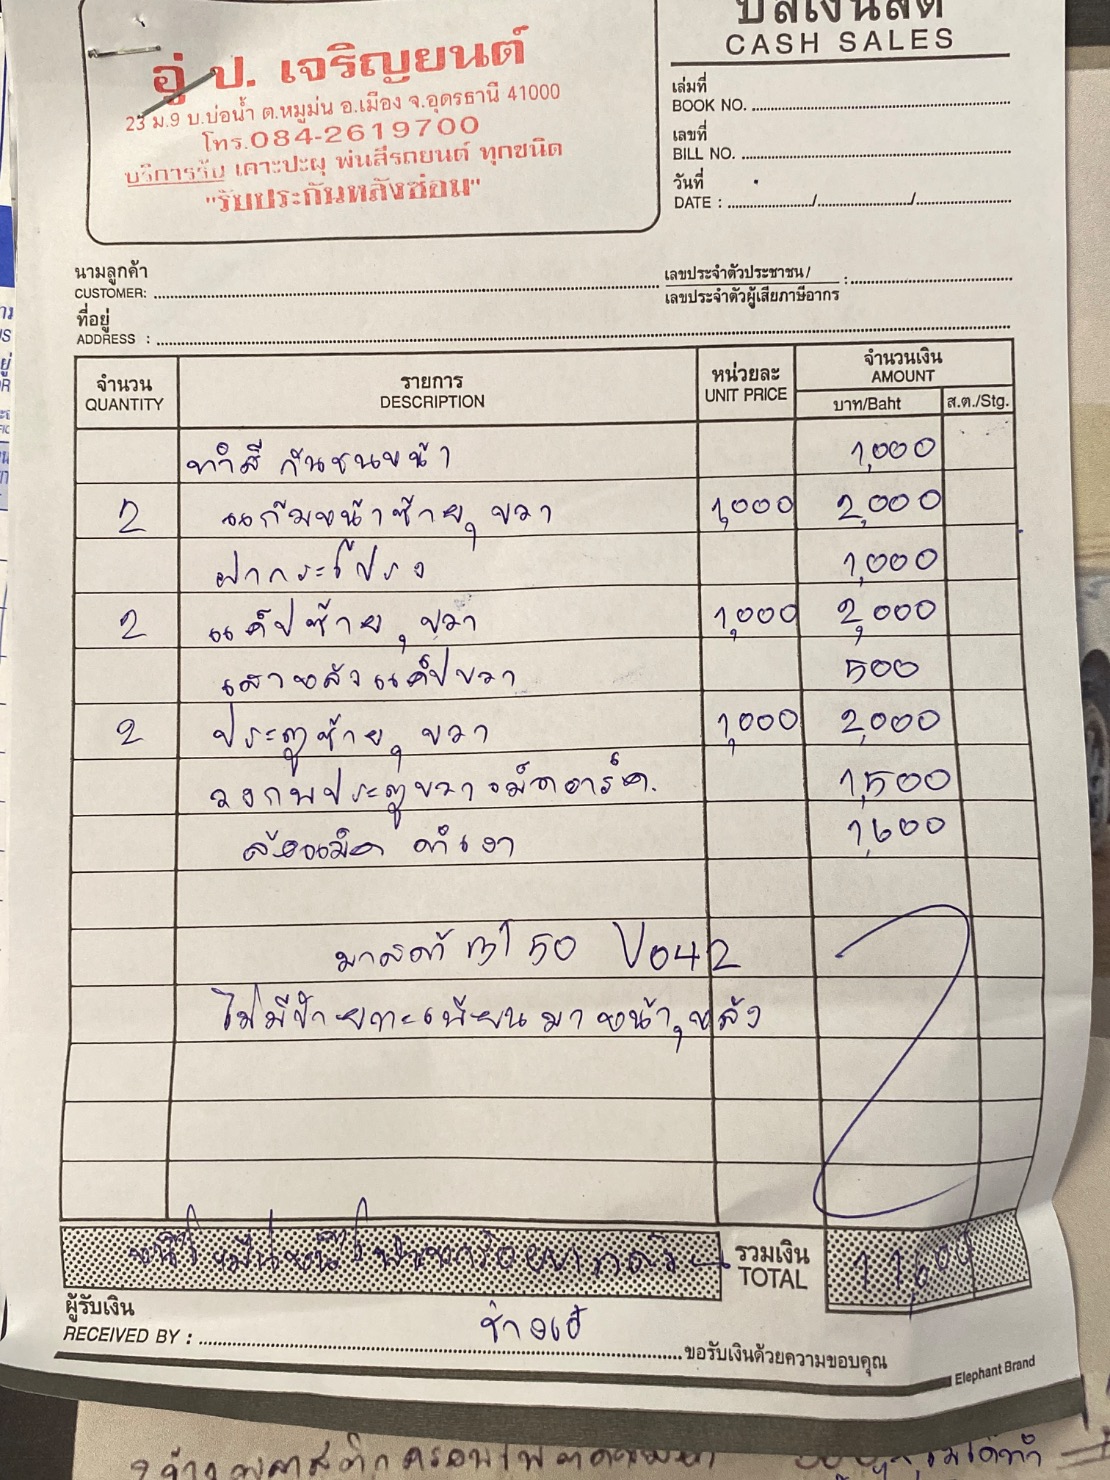 บิลเงินสด
CASH SALES
อู่ ป. เจริญยนต์
23 ม.9 บ.บ่อน้ำ ต.หมูม่น อ.เมือง จ.อุดรธานี 41000
โทร.084-2619700
บริการรับ เคาะปะผุ พ่นสีรถยนต์ ทุกชนิด
"รับประกันหลังซ่อม"
เล่มที่
BOOK NO.
เลขที่
BILL NO.
วันที่
DATE : / /
นามลูกค้า
CUSTOMER:
เลขประจำตัวประชาชน/
เลขประจำตัวผู้เสียภาษีอากร :
ที่อยู่
ADDRESS :
จำนวน รายการ หน่วยละ จำนวนเงิน
QUANTITY DESCRIPTION UNIT PRICE AMOUNT
บาท/Baht ส.ต./Stg.
ทำสี กันชนหน้า 1,000
2 แก้มหน้าซ้าย, ขวา 1,000 2,000
ฝากระโปรง 1,000
2 แค็ปซ้าย, ขวา 1,000 2,000
เสาหลังแค็ปขวา 500
2 ประตูซ้าย, ขวา 1,000 2,000
วงกบประตูขวา 1,500
ล้อแม็ค ดำเงา 1,600
มาสด้า BT 50 V042
ไม่มีป้ายทะเบียนมา หน้า, หลัง
รวมเงิน
TOTAL 11,600
ผู้รับเงิน
RECEIVED BY : ช่าง
ขอรับเงินด้วยความขอบคุณ
Elephant Brand